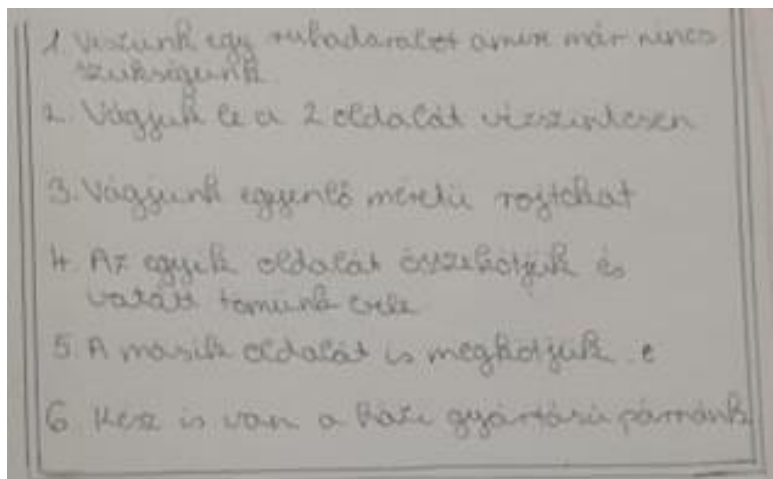 1. Veszünk egy ruhadarabot amire már nincs
szükségünk
2. Vágjuk le a 2 oldalát vízszintesen
3. Vágjunk egyenlő méretű rojtokat
4. Az egyik oldalát összekötjük és
vatát tömünk bele
5. A másik oldalát is megkötjük. e
6. Kész is van a házi gyártású párnánk